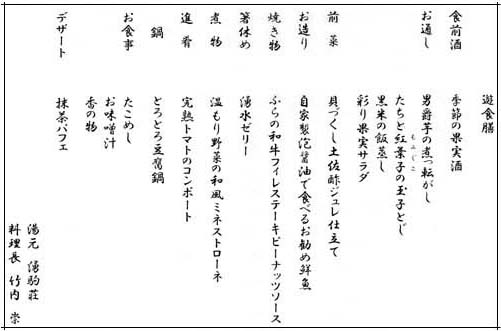 遊食膳
食前酒 季節の果実酒
お通し 男爵芋の煮っ転がし
たちと紅葉子の玉子とじ
もみじこ
黒米の飯蒸し
彩り果実サラダ
前菜 貝づくし土佐酢ジュレ仕立て
お造り 自家製泡醤油で食べるお勧め鮮魚
焼き物 ふらの和牛フィレステーキピーナッツソース
箸休め 湧水ゼリー
煮物 温もり野菜の和風ミネストローネ
進肴 完熟トマトのコンポート
鍋 とろとろ豆腐鍋
お食事 たこめし
お味噌汁
香の物
デザート 抹茶パフェ
湯元 湧駒荘
料理長 竹内 崇